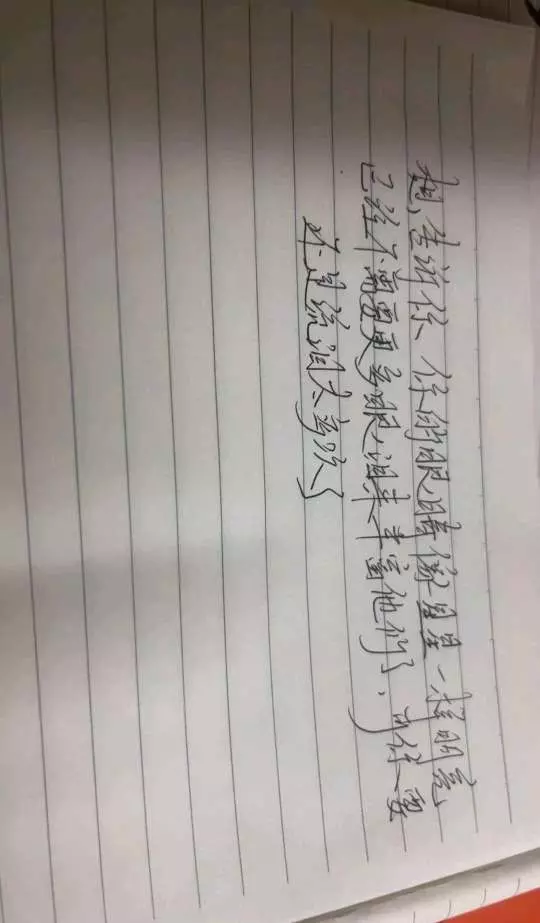 想告诉你,你的眼睛像星星一样明亮
已经不需要更多眼泪来丰富他们了,可你
还是流泪太多次了